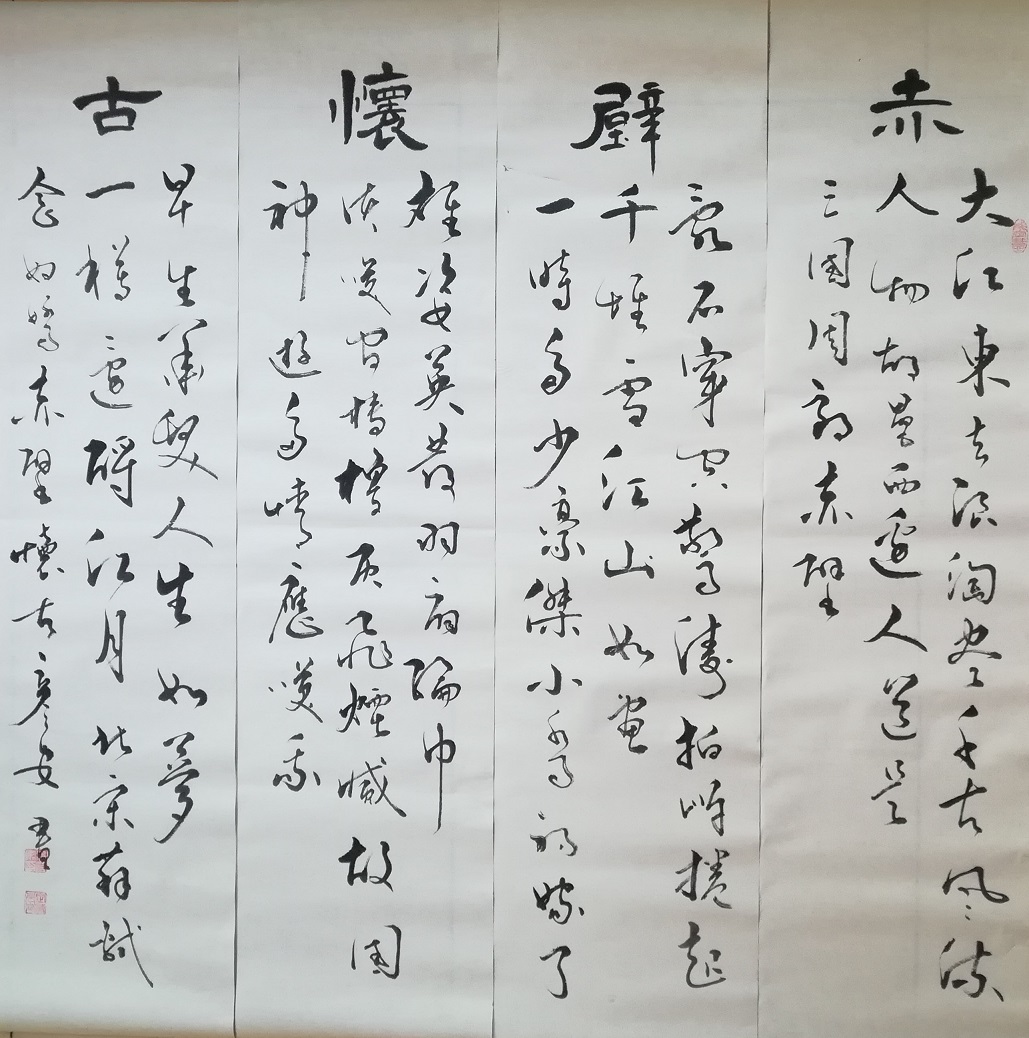 赤
大江東去浪淘盡千古風流
人物故壘西邊人道是
三國周郎赤壁
壁
亂石穿空驚濤拍岸捲起
千堆雪江山如畫
一時多少豪傑小喬初嫁了
懷
雄姿英發羽扇綸巾
談笑間檣櫓灰飛煙滅故國
神遊多情應笑我
古
早生華髮人生如夢
一樽還酹江月 北宋蘇軾
念奴嬌赤壁懷古彥安書